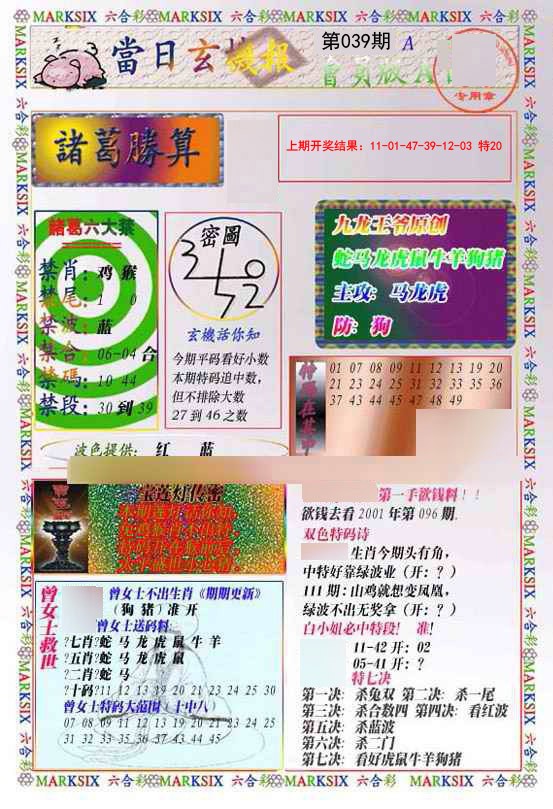 MARKSIX 六合彩 MARKSIX 六合彩 MARKSIX 六合彩 MARKSIX 六合彩
當日玄機报
第039期 A
會員版A
专用章
諸葛勝算
上期开奖结果：11-01-47-39-12-03 特20
諸葛六大禁
禁肖：鸡 猴
禁尾：1 0
禁波：蓝
禁合：06-04 合
禁碼：10 44
禁段：30 到 39
密圖
玄機話你知
今期平码看好小数
本期特码追中数，
但不排除大数
27 到 46 之数
九龙王爷原创
蛇马龙虎鼠牛羊狗猪
主攻：马龙虎
防：狗
01 07 08 09 11 12 13 19 20
21 23 24 25 31 32 33 35 36
37 43 44 45 47 48 49
波色提供：红 蓝
宝莲灯传密
第一手欲钱料！！
欲钱去看 2001 年第 096 期.
双色特码诗
生肖今期头有角，
中特好靠绿波业（开：？）
111 期：山鸡就想变凤凰，
绿波不出无奖拿（开：？）
白小姐必中特段！ 准！
11-42 开：02
05-41 开：？
特七决
第一决：杀兔双 第二决：杀一尾
第三决：杀合数四 第四决：看红波
第五决：杀蓝波
第六决：杀二门
第七决：看好虎鼠牛羊狗猪
曾女士救世
曾女士不出生肖《期期更新》
（狗 猪）准 开
曾女士送码料
?七肖?蛇 马 龙 虎 鼠 牛 羊
?五肖?蛇 马 龙 虎 鼠
?二肖?蛇 马
?十码?11 12 13 19 20 21 23 24 25 30
曾女士特码大范围（十中八）
07 08 09 11 12 13 19 20 21 23 24 25
31 32 33 35 36 37 43 44 45
MARKSIX 六合彩 MARKSIX 六合彩 MARKSIX 六合彩 MARKSIX 六合彩